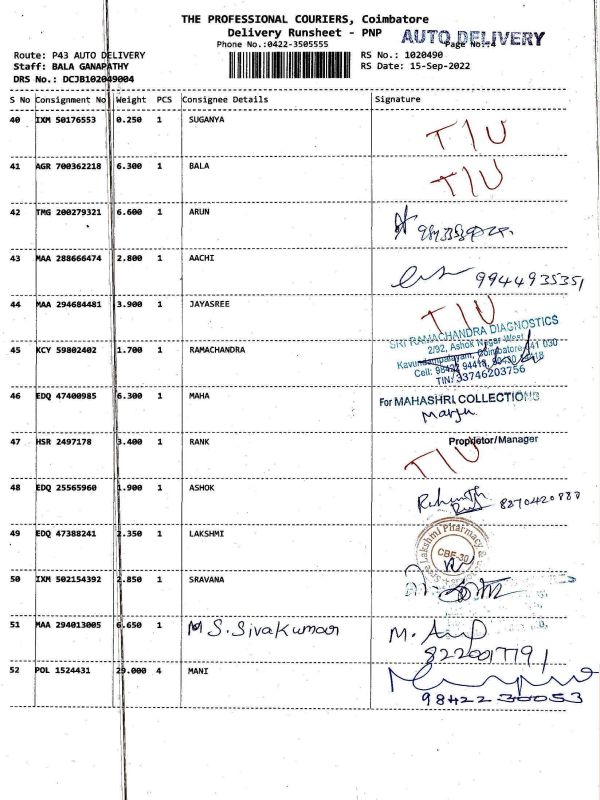 THE PROFESSIONAL COURIERS, Coimbatore
Delivery Runsheet - PNP
AUTO DELIVERY
Phone No.:0422-3505555
Page No.:4
Route: P43 AUTO DELIVERY
RS No.: 1020490
Staff: BALA GANAPATHY
RS Date: 15-Sep-2022
DRS No.: DCJB102049004
S No Consignment No Weight PCS Consignee Details Signature
40 IXM 50176553 0.250 1 SUGANYA T/U
41 AGR 700362218 6.300 1 BALA T/U
42 TMG 200279321 6.600 1 ARUN
43 MAA 288666474 2.800 1 AACHI 9944935351
44 MAA 294684481 3.900 1 JAYASREE T/U
SRI RAMACHANDRA DIAGNOSTICS
2/92, Ashok Nagar West
45 KCY 59802402 1.700 1 RAMACHANDRA Kavundampalayam, Coimbatore 641 030
Cell:
TIN: 33746203756
46 EDQ 47400985 6.300 1 MAHA For MAHASHRI COLLECTIONS
Manju
Proprietor/Manager
47 HSR 2497178 3.400 1 RANK T/U
48 EDQ 25565960 1.900 1 ASHOK 8270420888
49 EDQ 47388241 2.350 1 LAKSHMI Sree Lakshmi Pharmacy &
CBE-30
50 IXM 502154392 2.850 1 SRAVANA
51 MAA 294013005 6.650 1 M S. Sivakumar M. Anup
8220017791
52 POL 1524431 29.000 4 MANI
98422 30053